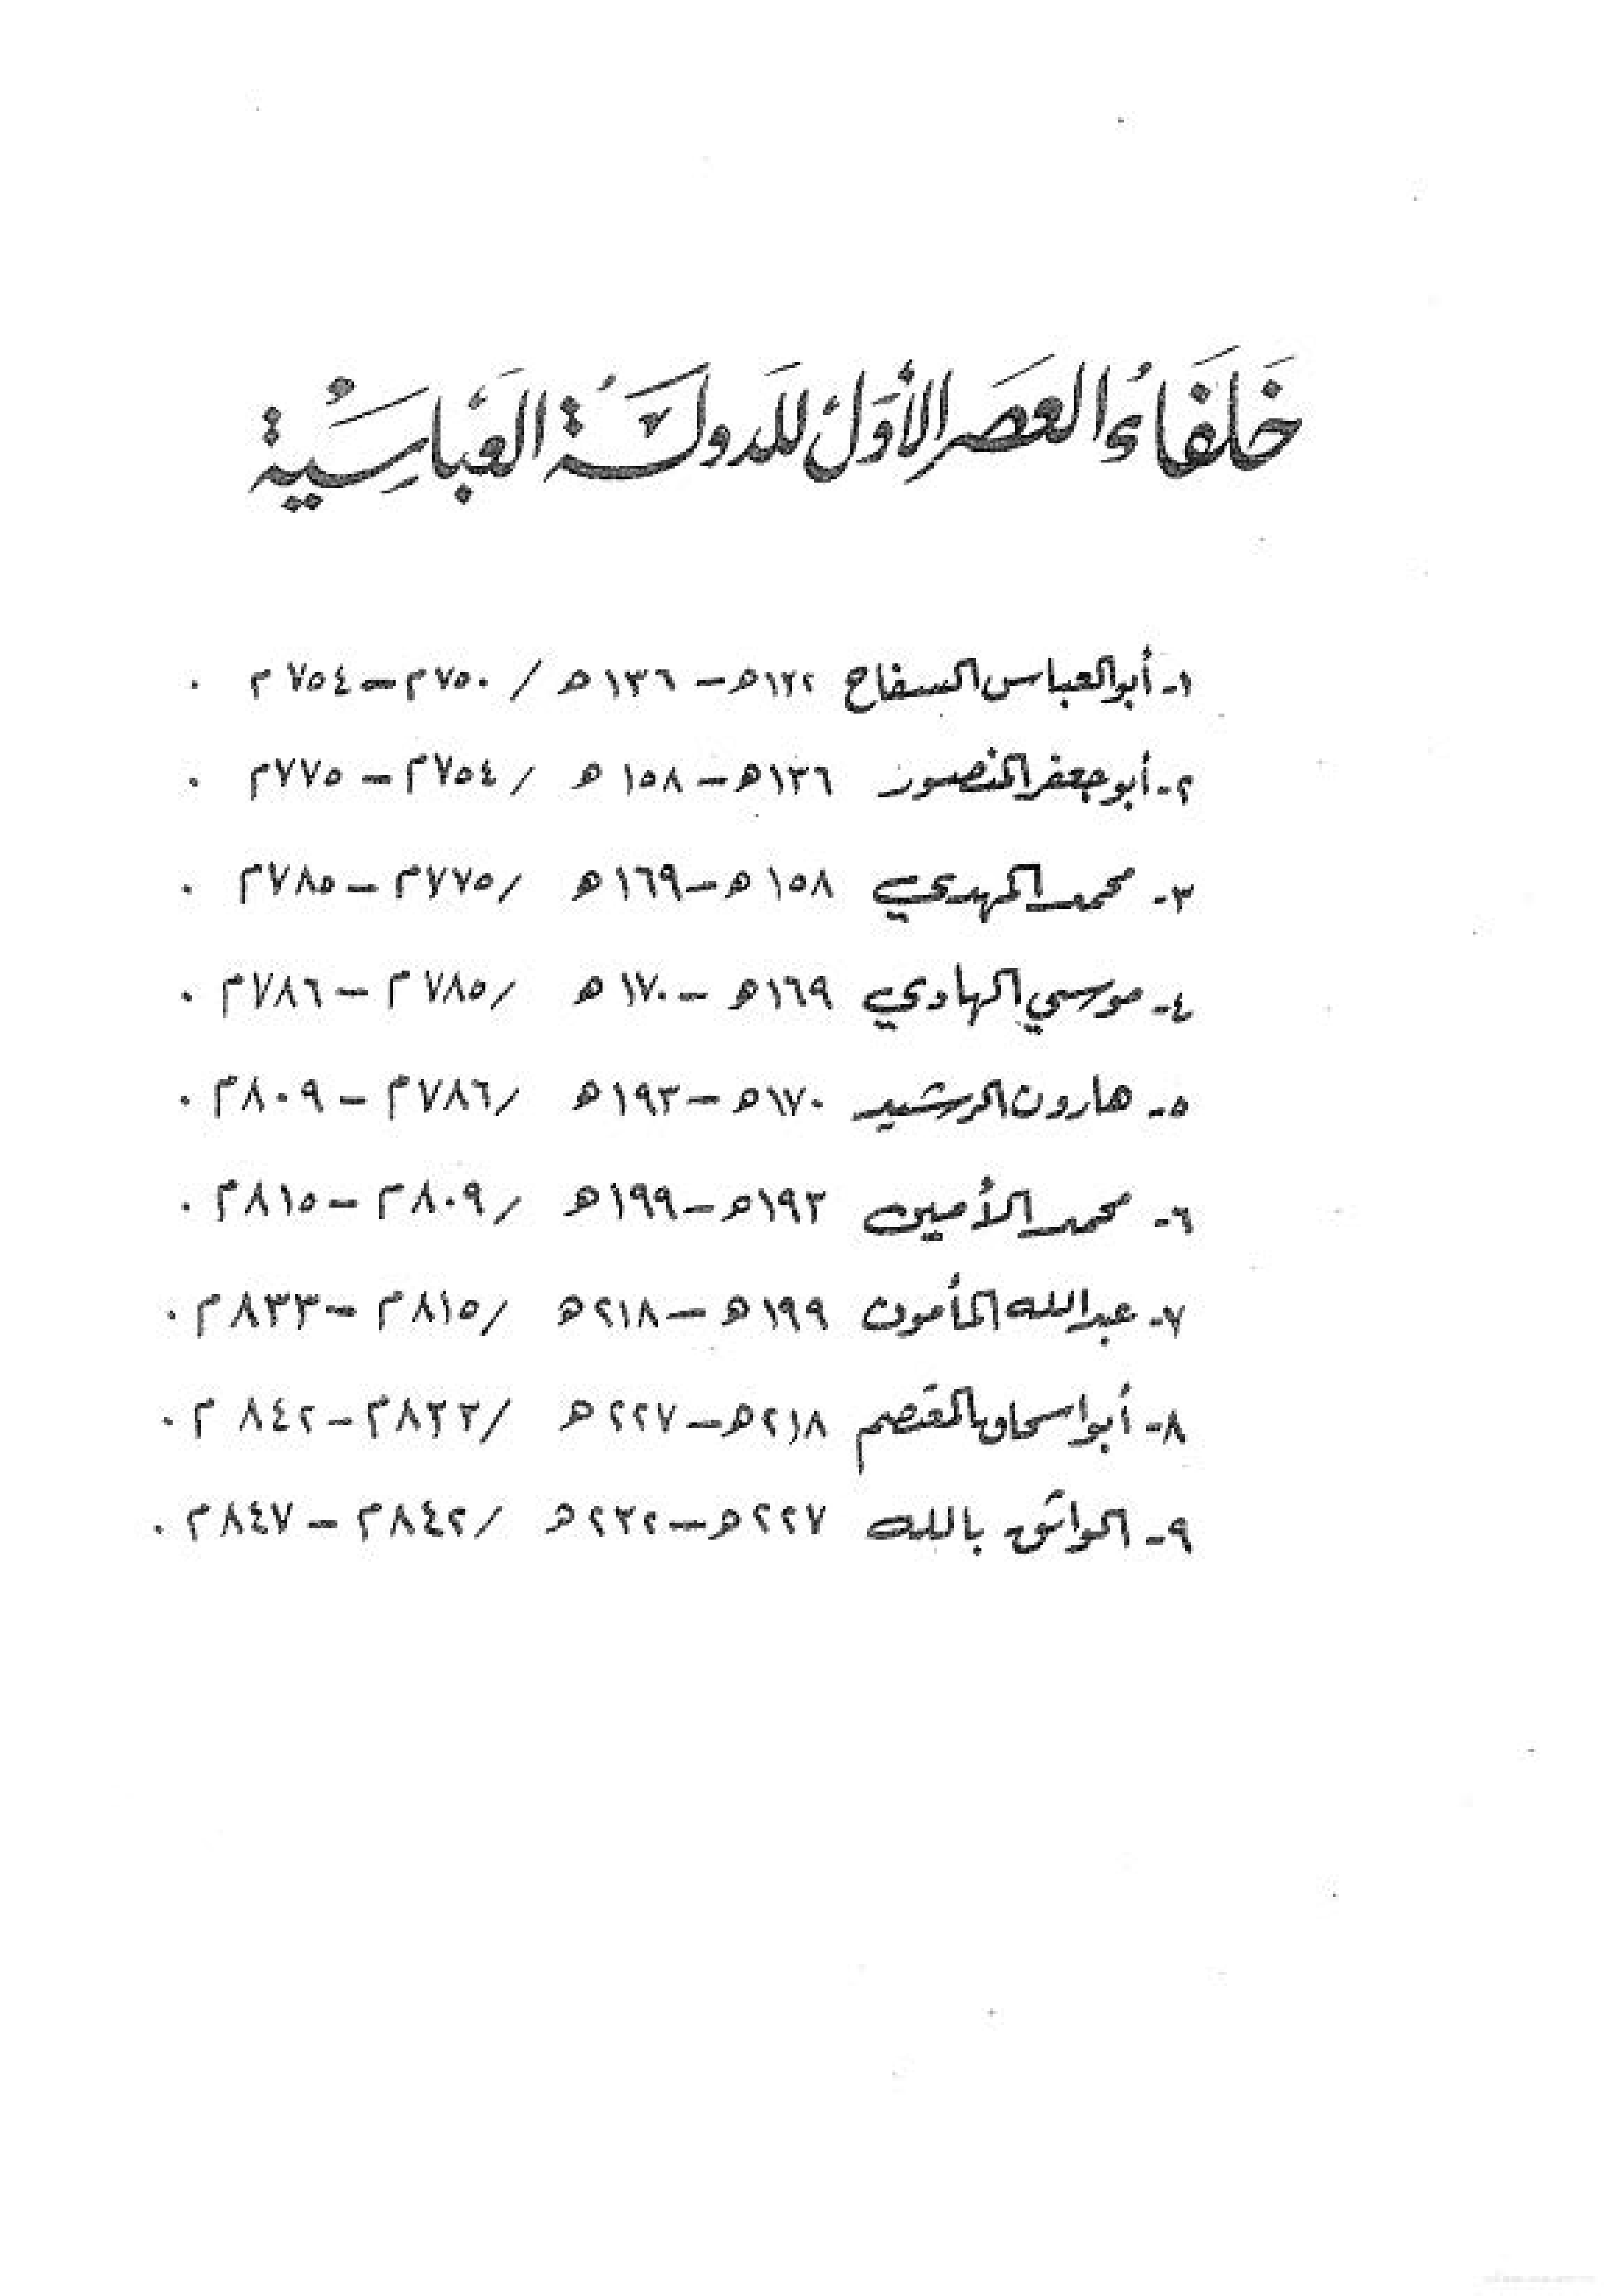 خَلَفَاءُ العصَر الأوَل للدولَة العَباسِية
١- أبو العباس السفاح ١٣٢هـ - ١٣٦هـ / ٧٥٠م - ٧٥٤م .
٢- أبو جعفر المنصور ١٣٦هـ - ١٥٨هـ / ٧٥٤م - ٧٧٥م .
٣- محمد المهدي ١٥٨هـ - ١٦٩هـ / ٧٧٥م - ٧٨٥م .
٤- موسي الهادي ١٦٩هـ - ١٧٠هـ / ٧٨٥م - ٧٨٦م .
٥- هارون الرشيد ١٧٠هـ - ١٩٣هـ / ٧٨٦م - ٨٠٩م .
٦- محمد الأمين ١٩٣هـ - ١٩٩هـ / ٨٠٩م - ٨١٥م .
٧- عبد الله المأمون ١٩٩هـ - ٢١٨هـ / ٨١٥م - ٨٣٣م .
٨- أبو اسحاق المعتصم ٢١٨هـ - ٢٢٧هـ / ٨٣٣م - ٨٤٢م .
٩- الواثق بالله ٢٢٧هـ - ٢٣٢هـ / ٨٤٢م - ٨٤٧م .